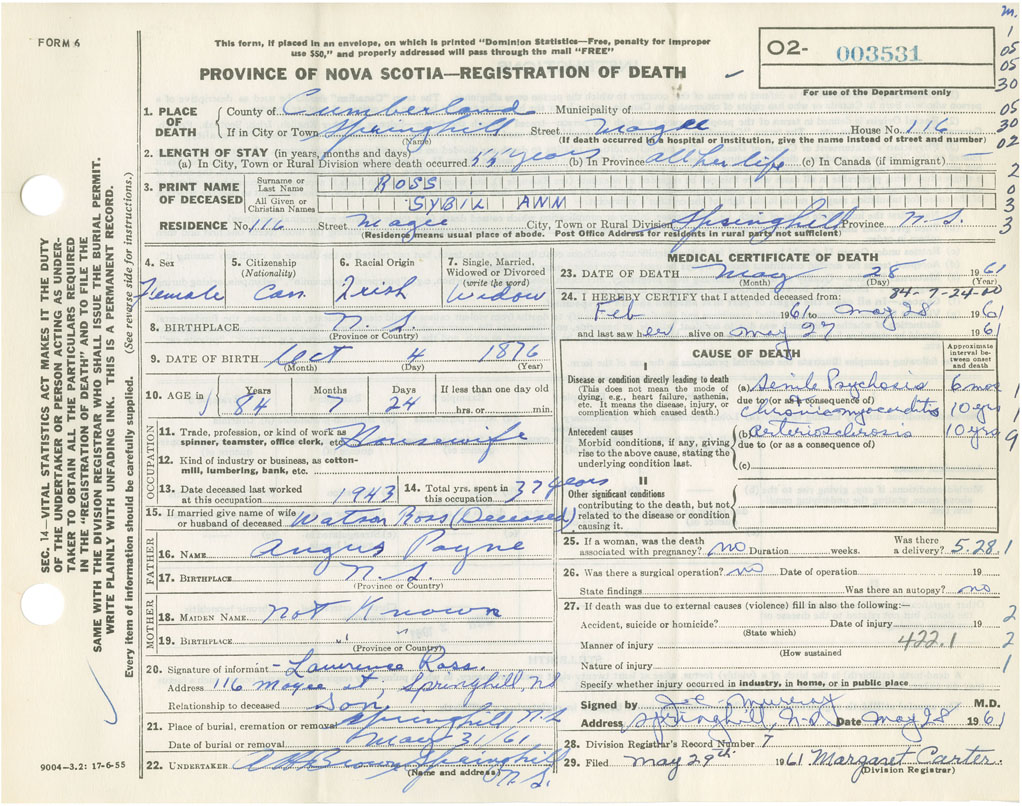 FORM 6
This form, if placed in an envelope, on which is printed "Dominion Statistics—Free, penalty for improper
use $50," and properly addressed will pass through the mail "FREE"
PROVINCE OF NOVA SCOTIA—REGISTRATION OF DEATH
O2- 003531
For use of the Department only
m.
1
05
05
30
05
30
02
2
0
3
3
SEC. 14—VITAL STATISTICS ACT MAKES IT THE DUTY
OF THE UNDERTAKER OR PERSON ACTING AS UNDER-
TAKER TO OBTAIN ALL THE PARTICULARS REQUIRED
IN THE "REGISTRATION OF DEATH" AND TO FILE THE
SAME WITH THE DIVISION REGISTRAR WHO SHALL ISSUE THE BURIAL PERMIT.
WRITE PLAINLY WITH UNFADING INK. THIS IS A PERMANENT RECORD.
Every item of information should be carefully supplied. (See reverse side for instructions.)
1. PLACE OF DEATH
County of Cumberland Municipality of
If in City or Town Springhill Street Magee House No. 116
(Name) (If death occurred in a hospital or institution, give the name instead of street and number)
2. LENGTH OF STAY (in years, months and days)
(a) In City, Town or Rural Division where death occurred 55 years (b) In Province all her life (c) In Canada (if immigrant)
3. PRINT NAME OF DECEASED
Surname or Last Name ROSS
All Given or Christian Names SYBIL ANN
RESIDENCE No. 116 Street Magee City, Town or Rural Division Springhill Province N.S.
(Residence means usual place of abode. Post Office Address for residents in rural party not sufficient)
4. Sex
Female
5. Citizenship
(Nationality)
Can.
6. Racial Origin
Irish
7. Single, Married,
Widowed or Divorced
(write the word)
Widow
8. BIRTHPLACE N.S.
(Province or Country)
9. DATE OF BIRTH Oct 4 1876
(Month) (Day) (Year)
10. AGE in
Years Months Days If less than one day old
84 7 24 hrs. or min.
OCCUPATION
11. Trade, profession, or kind of work as
spinner, teamster, office clerk, etc. Housewife
12. Kind of industry or business, as cotton-
mill, lumbering, bank, etc.
13. Date deceased last worked
at this occupation 1943
14. Total yrs. spent in
this occupation 37 years
15. If married give name of wife
or husband of deceased Watson Ross (Deceased)
FATHER
16. NAME Angus Payne
17. BIRTHPLACE N.S.
(Province or Country)
MOTHER
18. MAIDEN NAME Not Known
19. BIRTHPLACE " "
(Province or Country)
20. Signature of informant - Lawrence Ross.
Address 116 Magee St, Springhill, NS
Relationship to deceased Son
21. Place of burial, cremation or removal Springhill N.S.
Date of burial or removal May 31/61
22. UNDERTAKER Brown Springhill
(Name and address) N.S.
9004-3.2: 17-6-55
MEDICAL CERTIFICATE OF DEATH
23. DATE OF DEATH May 28 1961
(Month) (Day) (Year)
84-7-24-00
24. I HEREBY CERTIFY that I attended deceased from:
Feb 1961 to May 28 1961
and last saw her alive on May 27 1961
CAUSE OF DEATH
Approximate
interval be-
tween onset
and death
I
Disease or condition directly leading to death
(This does not mean the mode of
dying, e.g., heart failure, asthenia,
etc. It means the disease, injury, or
complication which caused death.)
(a) Senile Psychosis 6 mos 1
due to (or as a consequence of)
Chronic myocarditis 10 yrs 1
Antecedent causes
Morbid conditions, if any, giving
rise to the above cause, stating the
underlying condition last.
(b) Arteriosclerosis 10 yrs 9
due to (or as a consequence of)
(c)
II
Other significant conditions
contributing to the death, but not
related to the disease or condition
causing it.
25. If a woman, was the death
associated with pregnancy? no Duration weeks. Was there
a delivery? 5.28.1
26. Was there a surgical operation? no Date of operation 19
State findings Was there an autopsy? no
27. If death was due to external causes (violence) fill in also the following:—
Accident, suicide or homicide? Date of injury 19 2
(State which)
Manner of injury 422.1 2
(How sustained
Nature of injury 1
Specify whether injury occurred in industry, in home, or in public place
Signed by J. C. Murray M.D.
Address Springhill, N.S. Date May 28 1961
28. Division Registrar's Record Number 7
29. Filed May 29th 1961 Margaret Carter.
(Division Registrar)